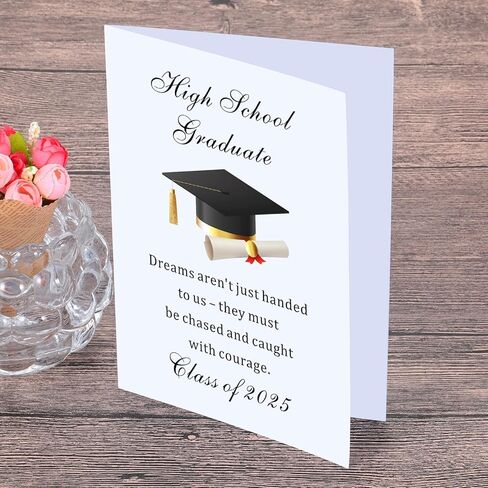 High School
Graduate
Dreams aren't just handed
to us – they must
be chased and caught
with courage.
Class of 2025